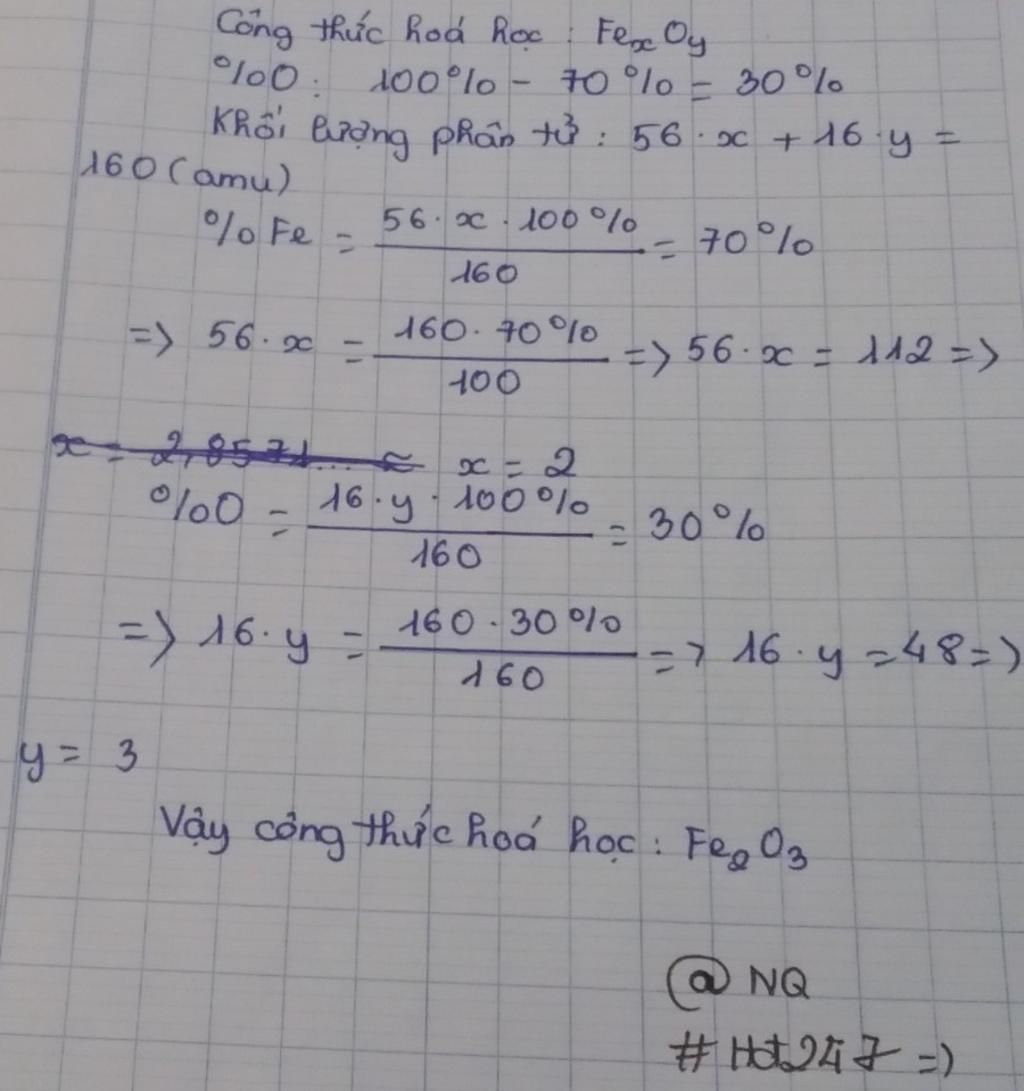 Công thức hoá học : FeₓOy
%O : 100% - 70% = 30%
Khối lượng phân tử : 56 · x + 16 · y =
160 (amu)
%Fe = (56 · x · 100%)/160 = 70%
=> 56 · x = (160 · 70%)/100 => 56 · x = 112 =>
x = 2,8571... ≈ x = 2
%O = (16 · y · 100%)/160 = 30%
=> 16 · y = (160 · 30%)/160 => 16 · y = 48 =>
y = 3
Vậy công thức hoá học : Fe₂O₃
@ NQ
# Hot247 =)